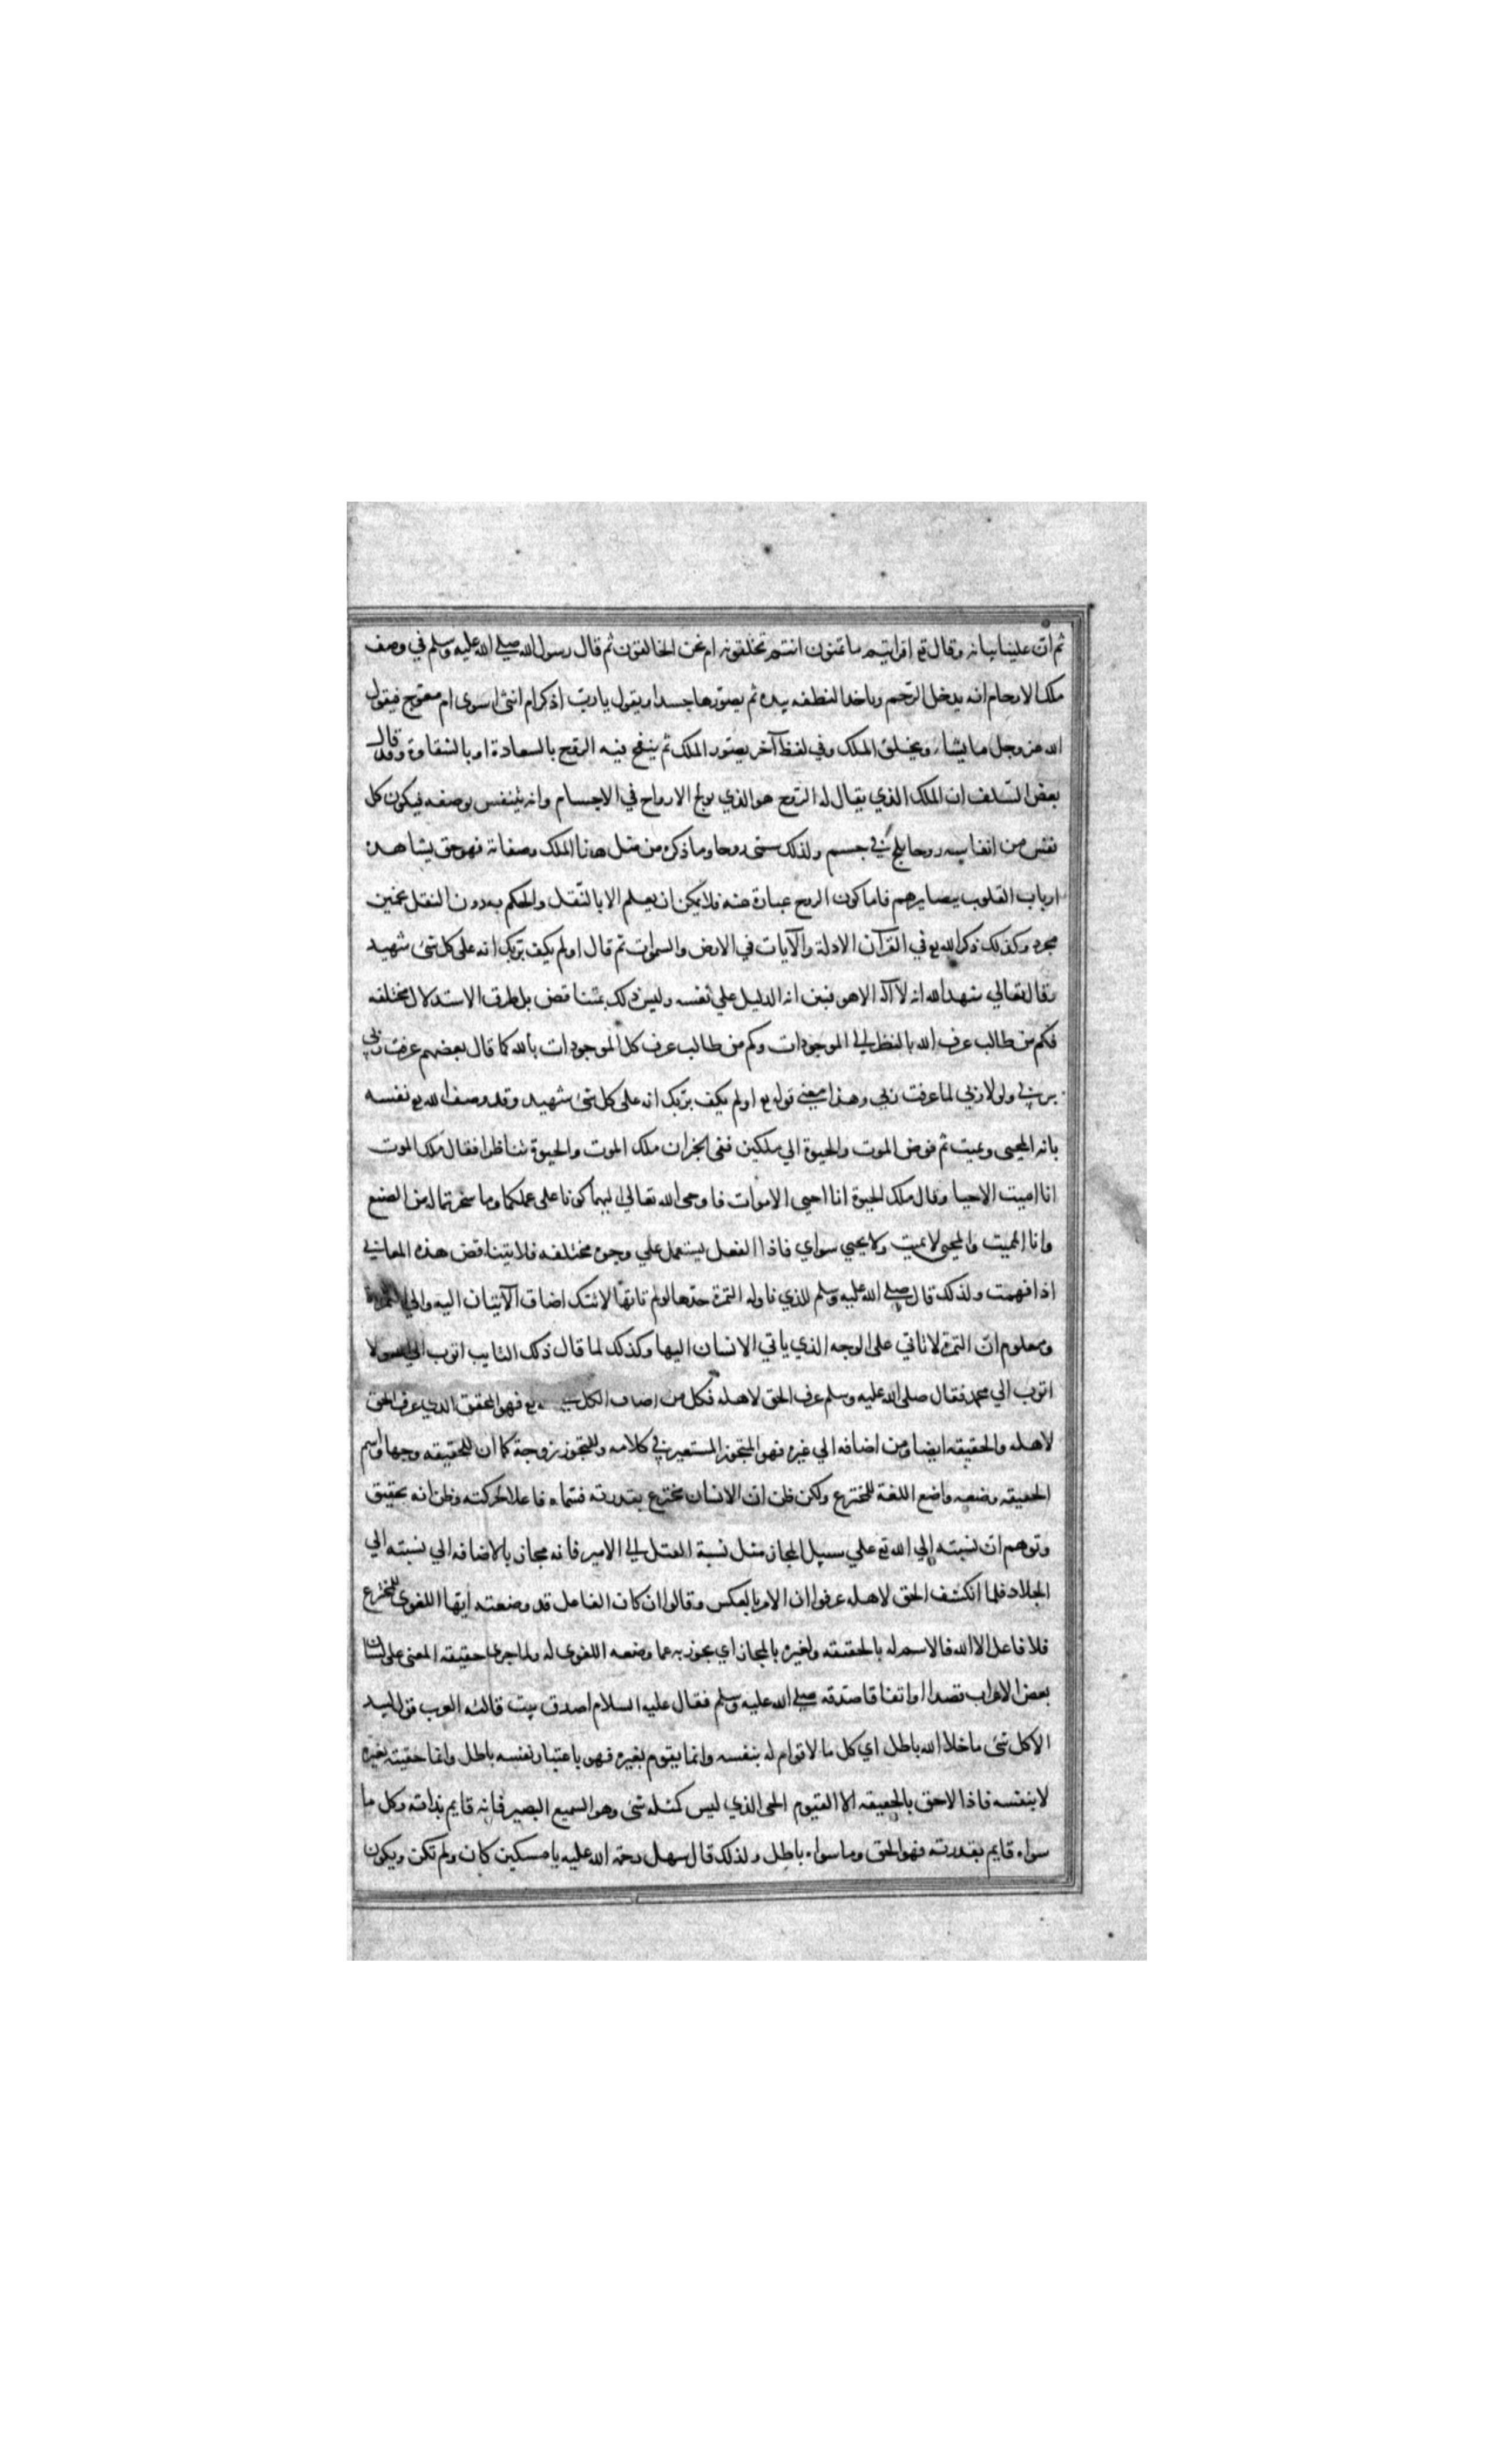 ثم ان علينا بيانه وقال تع افرايتم ما تمنون انتم تخلقونه ام نحن الخالقون ثم قال رسول الله صلى الله عليه وسلم في وصف
ملك الارحام انه يدخل الرحم وياخذ النطفه بيده ثم يصورها جسدا ويقول يا رب اذكر ام انثى اسوى ام معوج فيقول
الله عز وجل ما يشاء ويخلق الملك وفي لفظ آخر يصور الملك ثم ينفخ فيه الروح بالسعادة او بالشقاوة وقد قال
بعض السلف ان الملك الذي يقال له الروح هو الذي يولج الارواح في الاجسام وانه يتنفس بوصفه فيكون كل
نفس من انفاسه روحا يلج في جسم ولذلك سمى روحا وما ذكره من مثل هذا الملك وصفاته فهو حق يشاهده
ارباب القلوب ببصايرهم فاما كون الروح عبارة عنه فلا يمكن ان يعلم الا بالنقل والحكم بدون النقل تخمين
مجرد وكذلك ذكر الله تع في القرآن الادلة والآيات في الارض والسموات ثم قال اولم يكف بربك انه على كل شئ شهيد
وقال تعالي شهد الله انه لا آله الا هو فبين انه الدليل علي نفسه وليس ذلك بمتناقض بل طرق الاستدلال مختلفه
فكم من طالب عرف الله بالنظر الى الموجودات وكم من طالب عرف كل الموجودات بالله كما قال بعضهم عرفت ربي
بربي ولولا ربي لما عرفت ربي وهذا معنى قوله تع اولم يكف بربك انه على كل شئ شهيد وقد وصف الله تع نفسه
بانه المحيى ومميت ثم فوض الموت والحيوة الي ملكين ففى الخبر ان ملك الموت والحيوة تناظرا فقال ملك الموت
انا اميت الاحيا وقال ملك الحيوة انا احيى الاموات فاوحى الله تعالى اليهما كونا على عملكما وما سخرتما له من الصنع
وانا المميت والمحيى لا يميت ولا يحيي سواي فاذا الفعل يستعمل علي وجوه مختلفه فلا يتناقض هذه المعاني
اذا فهمت ولذلك قال صلى الله عليه وسلم للذي ناوله التمرة خذها لو لم تاتها لاتتك اضاف الآتيان اليه والي التمرة
ومعلوم ان التمرة لا تاتي على الوجه الذي ياتي الانسان اليها وكذلك لما قال ذلك التايب اتوب الى الله ولا
اتوب الي محمد فقال صلى الله عليه وسلم عرف الحق لاهله فكل من اضاف الكل تع فهو المحقق الذي عرف الحق
لاهله والحقيقه ايضا ومن اضافه الي غيره فهو المتجوز المستعير في كلامه وللتجوز وجه كما ان للحقيقه وجها واسم
الحقيقه وضعه واضع اللغة للمخترع ولكن ظن ان الانسان مخترع بقدرته فسماه فاعلا لحركته وظن انه تحقيق
وتوهم ان نسبته إلي الله تع علي سبيل المجاز مثل نسبة القتل الى الامير فانه مجاز بالاضافه الي نسبته الي
الجلاد فلما انكشف الحق لاهله عرفوا ان الامر بالعكس وقالوا ان كان الفاعل قد وضعته ايها اللغوى للمخترع
فلا فاعل الا الله فالاسم له بالحقيقه ولغيره بالمجاز اي يجوز به عما وضعه اللغوى له ولما جرى حقيقه المعنى على لسان
بعض الاعراب قصدا او اتفاقا صدقه صلى الله عليه وسلم فقال عليه السلام اصدق بيت قالته العرب قول لبيد
الا كل شئ ما خلا الله باطل اي كل ما لا قوام له بنفسه وانما يقوم بغيره فهو باعتبار نفسه باطل وانما حقيته بغيره
لا بنفسه فاذا لا حق بالحقيقه الا القيوم الحى الذي ليس كمثله شئ وهو السميع البصير فانه قايم بذاته وكل ما
سواه قايم بقدرته فهو الحق وما سواه باطل ولذلك قال سهل رحمة الله عليه يا مسكين كان ولم تكن ويكون